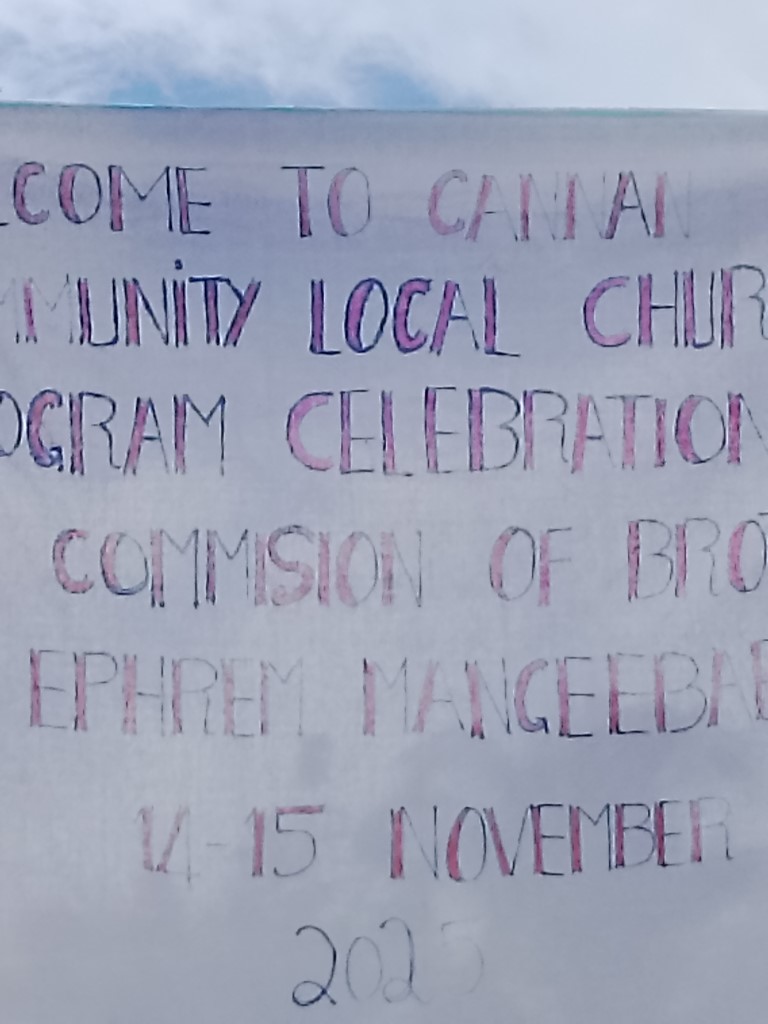 LCOME TO CANNAN
MMUNITY LOCAL CHUR
OGRAM CELEBRATION
COMMISION OF BRO
EPHREM MANGEEBAE
14-15 NOVEMBER
2025